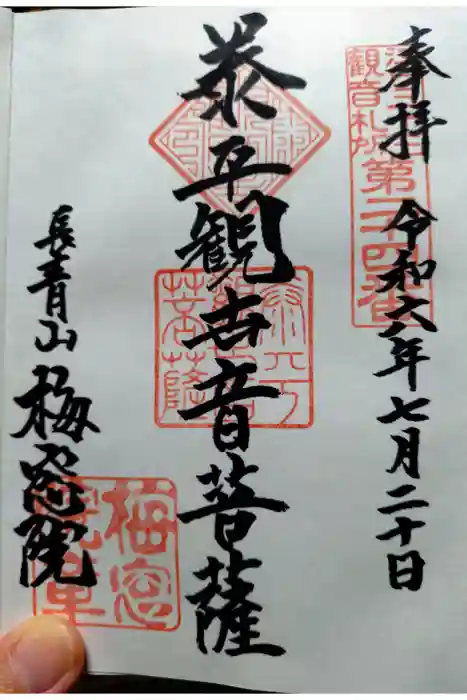 奉拝 令和六年七月二十日
泰平観世音菩薩
長青山 梅窓院
観音札所
第二十四番
梅窓
院章